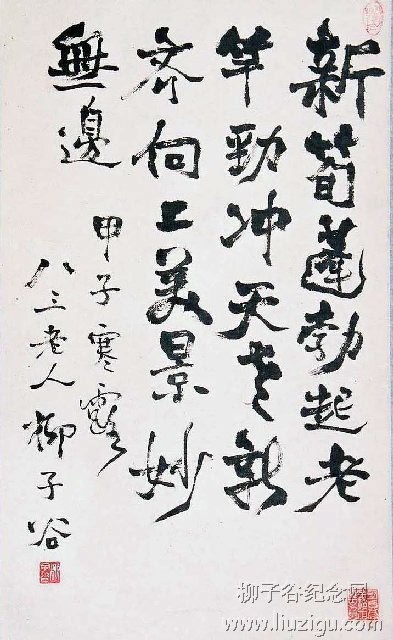 新筍蓬勃起老
竿勁冲天老新
齐向上美景妙
無邊
甲子寒露
八三老人柳子谷
柳子谷纪念网
www.liuzigu.com